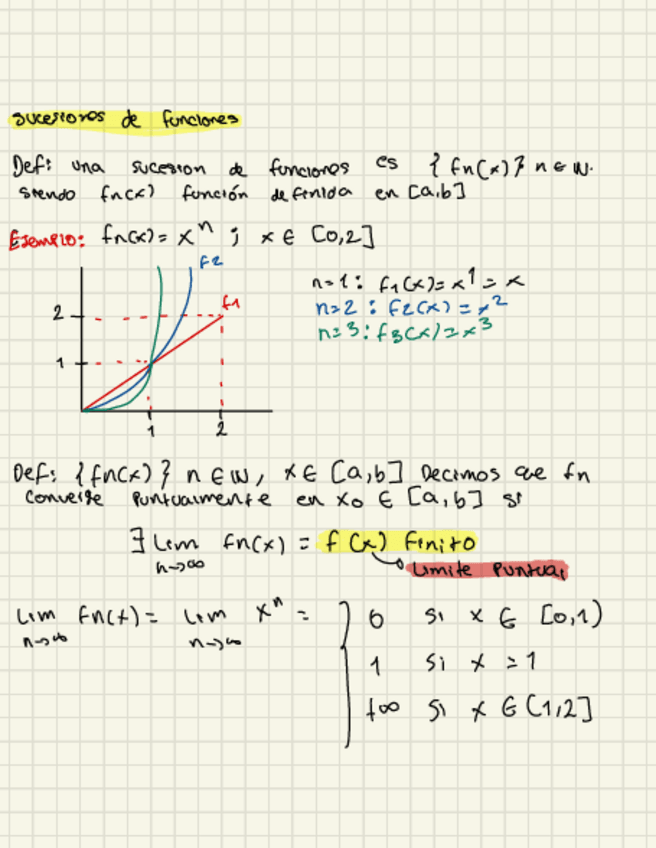 sucesiones de funciones
Def: una sucesion de funciones es {fn(x)} n ∈ IN.
siendo fn(x) función definida en [a,b]
Ejemplo: fn(x) = x^n ; x ∈ [0,2]
f2
f1
2
1
1 2
n=1: f1(x)=x^1 = x
n=2 : f2(x) = x^2
n=3: f3(x)=x^3
Def: {fn(x)} n ∈ IN, x ∈ [a,b] Decimos que fn
converge puntualmente en x0 ∈ [a,b] si
∃ lim fn(x) = f(x) finito
n→∞
Limite Puntual
lim fn(x) = lim x^n = { 0 si x ∈ [0,1)
n→∞ n→∞
1 si x = 1
+∞ si x ∈ (1,2]